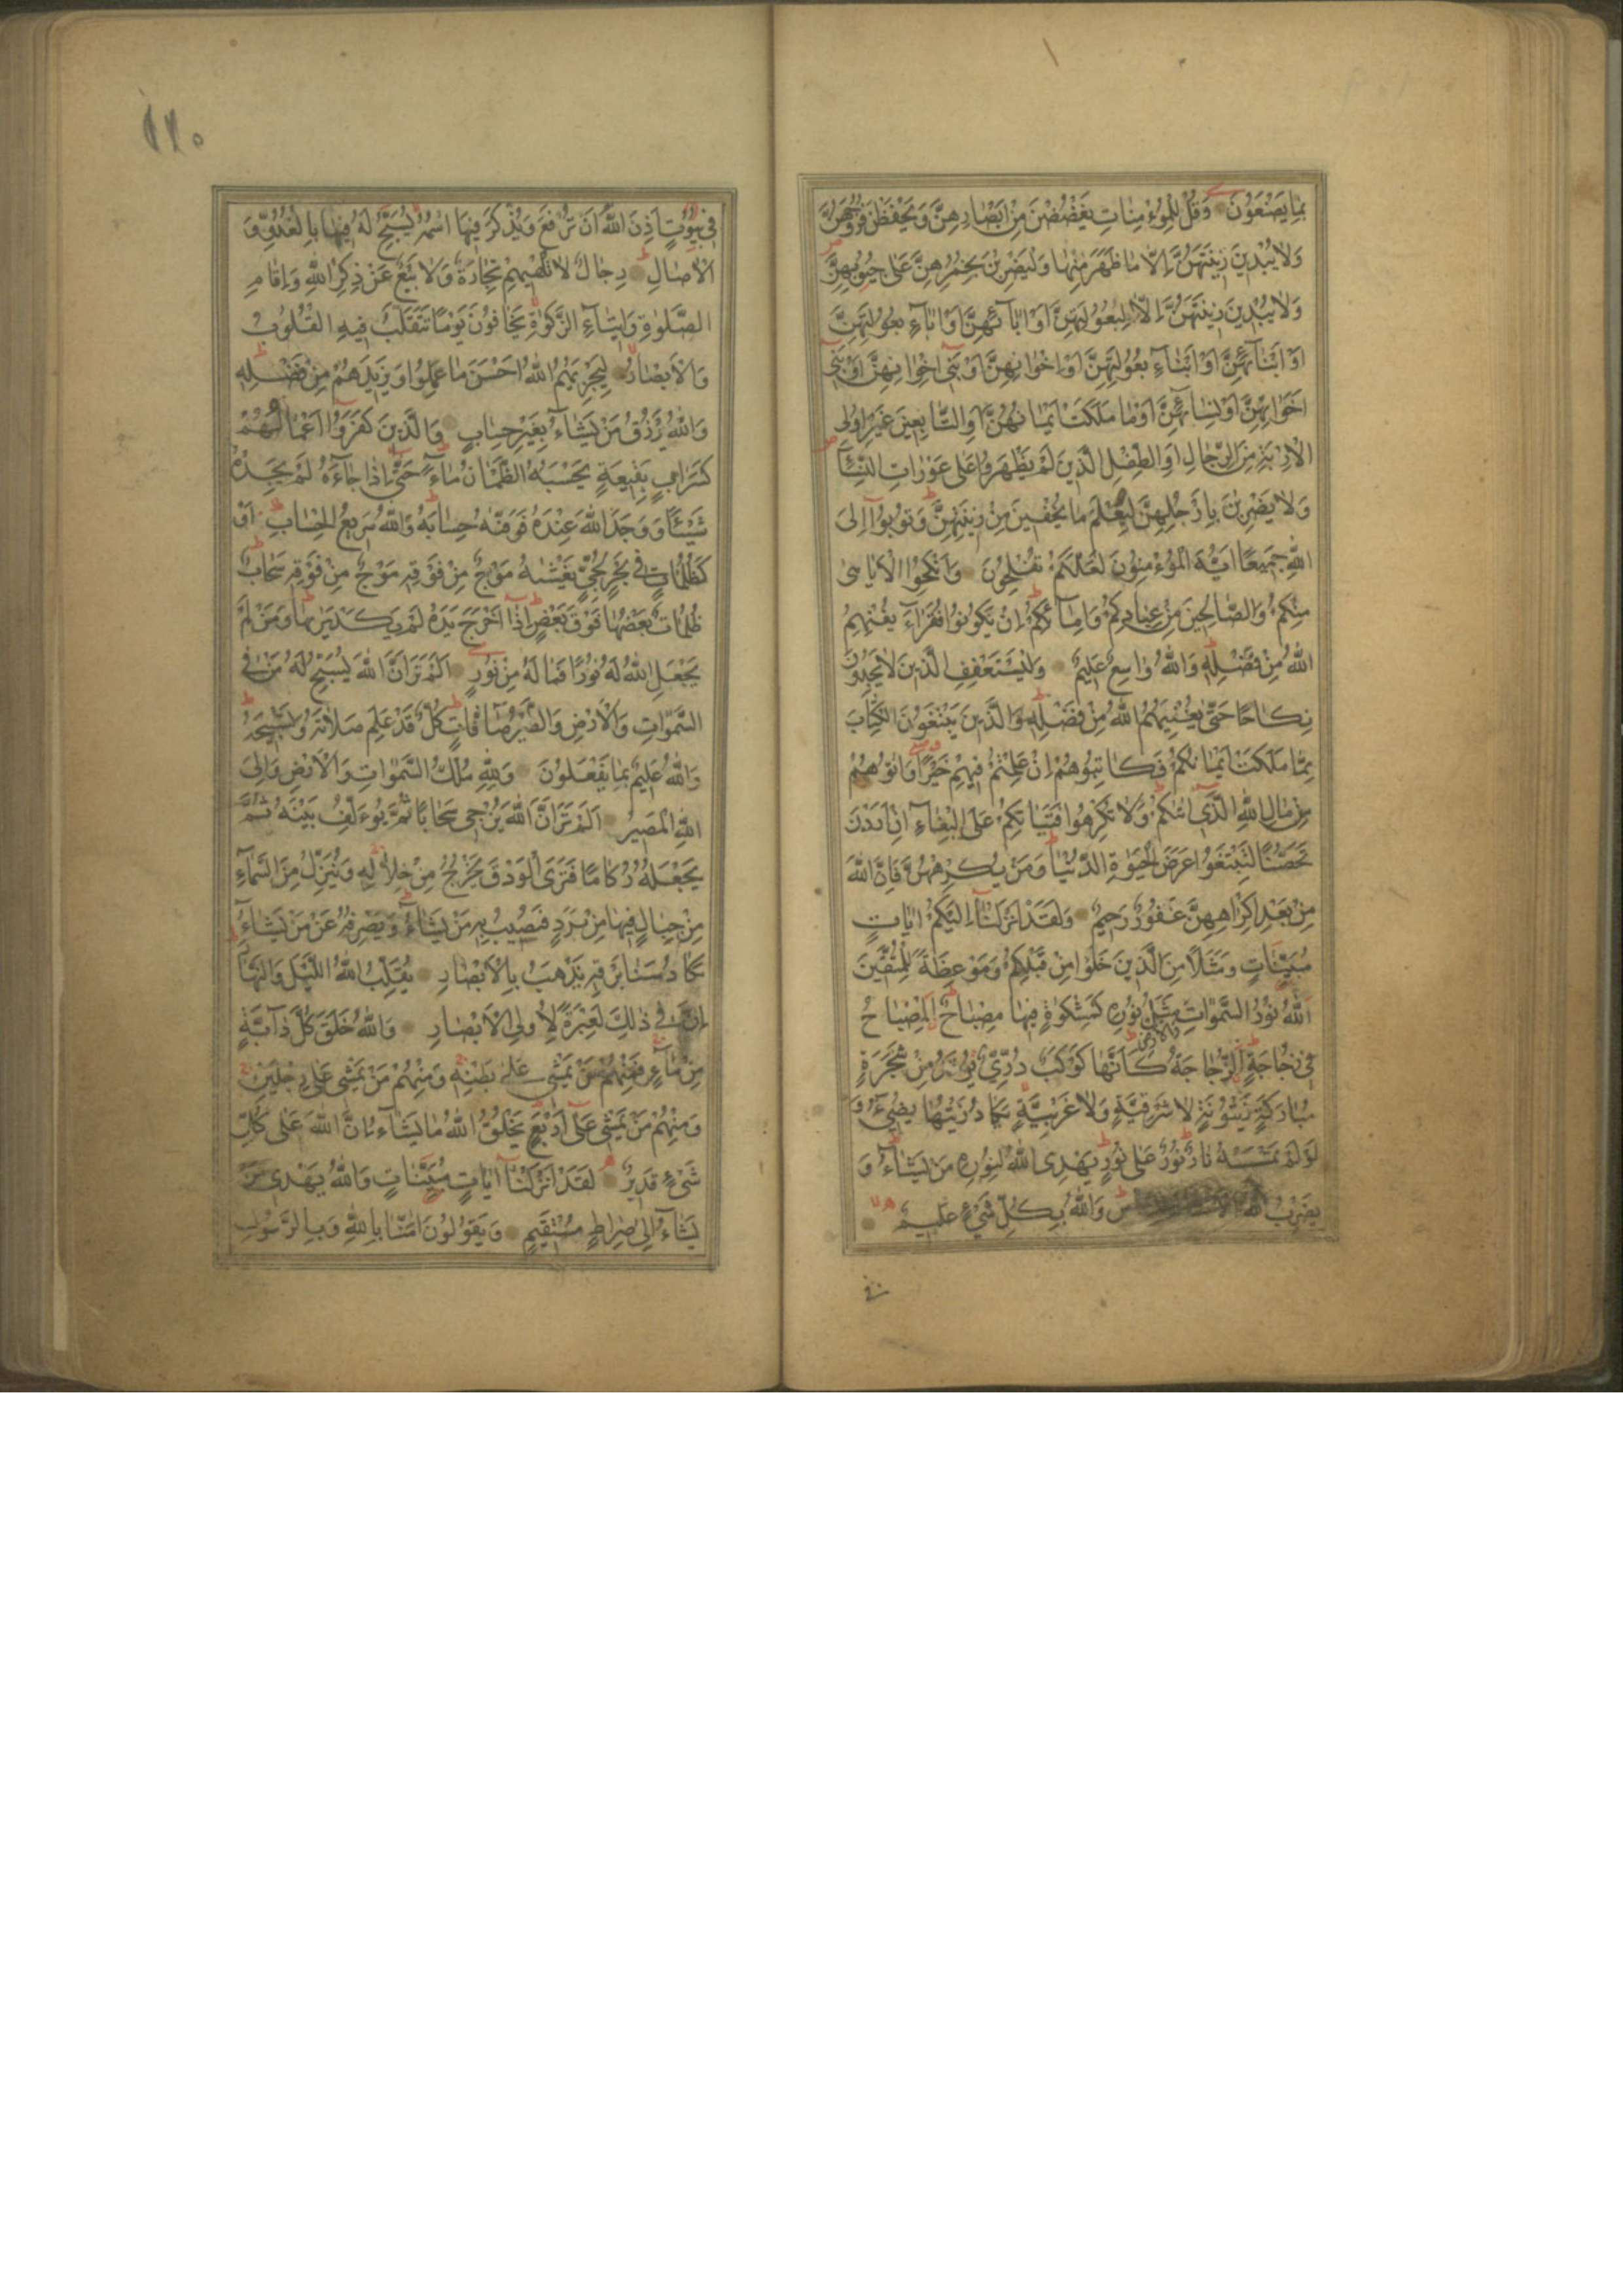 بِمَا يَصْنَعُونَ وَقُلْ لِلْمُؤْمِنَاتِ يَغْضُضْنَ مِنْ اَبْصَارِهِنَّ وَيَحْفَظْنَ فُرُوجَهُنَّ
وَلَا يُبْدِينَ زِينَتَهُنَّ اِلَّا مَا ظَهَرَ مِنْهَا وَلْيَضْرِبْنَ بِخُمُرِهِنَّ عَلَى جُيُوبِهِنَّ
وَلَا يُبْدِينَ زِينَتَهُنَّ اِلَّا لِبُعُولَتِهِنَّ اَوْ اٰبَآئِهِنَّ اَوْ اٰبَآءِ بُعُولَتِهِنَّ
اَوْ اَبْنَآئِهِنَّ اَوْ اَبْنَآءِ بُعُولَتِهِنَّ اَوْ اِخْوَانِهِنَّ اَوْ بَنِي اِخْوَانِهِنَّ اَوْ بَنِي
اَخَوَاتِهِنَّ اَوْ نِسَآئِهِنَّ اَوْ مَا مَلَكَتْ اَيْمَانُهُنَّ اَوِ التَّابِعِينَ غَيْرِ اُولِى
الْاِرْبَةِ مِنَ الرِّجَالِ اَوِ الطِّفْلِ الَّذِينَ لَمْ يَظْهَرُوا عَلَى عَوْرَاتِ النِّسَآءِ
وَلَا يَضْرِبْنَ بِاَرْجُلِهِنَّ لِيُعْلَمَ مَا يُخْفِينَ مِنْ زِينَتِهِنَّ وَتُوبُوا اِلَى
اللّٰهِ جَمِيعًا اَيُّهَ الْمُؤْمِنُونَ لَعَلَّكُمْ تُفْلِحُونَ وَاَنْكِحُوا الْاَيَامٰى
مِنْكُمْ وَالصَّالِحِينَ مِنْ عِبَادِكُمْ وَاِمَآئِكُمْ اِنْ يَكُونُوا فُقَرَآءَ يُغْنِهِمُ
اللّٰهُ مِنْ فَضْلِهِ وَاللّٰهُ وَاسِعٌ عَلِيمٌ وَلْيَسْتَعْفِفِ الَّذِينَ لَا يَجِدُونَ
نِكَاحًا حَتّٰى يُغْنِيَهُمُ اللّٰهُ مِنْ فَضْلِهِ وَالَّذِينَ يَبْتَغُونَ الْكِتَابَ
مِمَّا مَلَكَتْ اَيْمَانُكُمْ فَكَاتِبُوهُمْ اِنْ عَلِمْتُمْ فِيهِمْ خَيْرًا وَاٰتُوهُمْ
مِنْ مَالِ اللّٰهِ الَّذِى اٰتٰكُمْ وَلَا تُكْرِهُوا فَتَيَاتِكُمْ عَلَى الْبِغَآءِ اِنْ اَرَدْنَ
تَحَصُّنًا لِتَبْتَغُوا عَرَضَ الْحَيٰوةِ الدُّنْيَا وَمَنْ يُكْرِهْهُنَّ فَاِنَّ اللّٰهَ
مِنْ بَعْدِ اِكْرَاهِهِنَّ غَفُورٌ رَحِيمٌ وَلَقَدْ اَنْزَلْنَآ اِلَيْكُمْ اٰيَاتٍ
مُبَيِّنَاتٍ وَمَثَلًا مِنَ الَّذِينَ خَلَوْا مِنْ قَبْلِكُمْ وَمَوْعِظَةً لِلْمُتَّقِينَ
اَللّٰهُ نُورُ السَّمٰوَاتِ وَالْاَرْضِ مَثَلُ نُورِهِ كَمِشْكٰوةٍ فِيهَا مِصْبَاحٌ اَلْمِصْبَاحُ
فِى زُجَاجَةٍ اَلزُّجَاجَةُ كَاَنَّهَا كَوْكَبٌ دُرِّىٌّ يُوقَدُ مِنْ شَجَرَةٍ
مُبَارَكَةٍ زَيْتُونَةٍ لَا شَرْقِيَّةٍ وَلَا غَرْبِيَّةٍ يَكَادُ زَيْتُهَا يُضِىءُ وَ
لَوْ لَمْ تَمْسَسْهُ نَارٌ نُورٌ عَلَى نُورٍ يَهْدِى اللّٰهُ لِنُورِهِ مَنْ يَشَآءُ وَ
يَضْرِبُ اللّٰهُ وَاللّٰهُ بِكُلِّ شَىْءٍ عَلِيمٌ
فى
١٢٠
فِى بُيُوتٍ اَذِنَ اللّٰهُ اَنْ تُرْفَعَ وَيُذْكَرَ فِيهَا اسْمُهُ يُسَبِّحُ لَهُ فِيهَا بِالْغُدُوِّ وَ
الْاٰصَالِ رِجَالٌ لَا تُلْهِيهِمْ تِجَارَةٌ وَلَا بَيْعٌ عَنْ ذِكْرِ اللّٰهِ وَاِقَامِ
الصَّلٰوةِ وَاِيتَآءِ الزَّكٰوةِ يَخَافُونَ يَوْمًا تَتَقَلَّبُ فِيهِ الْقُلُوبُ
وَالْاَبْصَارُ لِيَجْزِيَهُمُ اللّٰهُ اَحْسَنَ مَا عَمِلُوا وَيَزِيدَهُمْ مِنْ فَضْلِهِ
وَاللّٰهُ يَرْزُقُ مَنْ يَشَآءُ بِغَيْرِ حِسَابٍ وَالَّذِينَ كَفَرُوا اَعْمَالُهُمْ
كَسَرَابٍ بِقِيعَةٍ يَحْسَبُهُ الظَّمْاٰنُ مَآءً حَتّٰى اِذَا جَآءَهُ لَمْ يَجِدْهُ
شَيْئًا وَوَجَدَ اللّٰهَ عِنْدَهُ فَوَفّٰيهُ حِسَابَهُ وَاللّٰهُ سَرِيعُ الْحِسَابِ اَوْ
كَظُلُمَاتٍ فِى بَحْرٍ لُجِّىٍّ يَغْشٰيهُ مَوْجٌ مِنْ فَوْقِهِ مَوْجٌ مِنْ فَوْقِهِ سَحَابٌ
ظُلُمَاتٌ بَعْضُهَا فَوْقَ بَعْضٍ اِذَآ اَخْرَجَ يَدَهُ لَمْ يَكَدْ يَرٰيهَا وَمَنْ لَمْ
يَجْعَلِ اللّٰهُ لَهُ نُورًا فَمَا لَهُ مِنْ نُورٍ اَلَمْ تَرَ اَنَّ اللّٰهَ يُسَبِّحُ لَهُ مَنْ فِى
السَّمٰوَاتِ وَالْاَرْضِ وَالطَّيْرُ صَآفَّاتٍ كُلٌّ قَدْ عَلِمَ صَلَاتَهُ وَتَسْبِيحَهُ
وَاللّٰهُ عَلِيمٌ بِمَا يَفْعَلُونَ وَلِلّٰهِ مُلْكُ السَّمٰوَاتِ وَالْاَرْضِ وَاِلَى
اللّٰهِ الْمَصِيرُ اَلَمْ تَرَ اَنَّ اللّٰهَ يُزْجِى سَحَابًا ثُمَّ يُؤَلِّفُ بَيْنَهُ ثُمَّ
يَجْعَلُهُ رُكَامًا فَتَرَى الْوَدْقَ يَخْرُجُ مِنْ خِلَالِهِ وَيُنَزِّلُ مِنَ السَّمَآءِ
مِنْ جِبَالٍ فِيهَا مِنْ بَرَدٍ فَيُصِيبُ بِهِ مَنْ يَشَآءُ وَيَصْرِفُهُ عَنْ مَنْ يَشَآءُ
يَكَادُ سَنَا بَرْقِهِ يَذْهَبُ بِالْاَبْصَارِ يُقَلِّبُ اللّٰهُ اللَّيْلَ وَالنَّهَارَ
اِنَّ فِى ذٰلِكَ لَعِبْرَةً لِاُولِى الْاَبْصَارِ وَاللّٰهُ خَلَقَ كُلَّ دَآبَّةٍ
مِنْ مَآءٍ فَمِنْهُمْ مَنْ يَمْشِى عَلَى بَطْنِهِ وَمِنْهُمْ مَنْ يَمْشِى عَلَى رِجْلَيْنِ
وَمِنْهُمْ مَنْ يَمْشِى عَلَى اَرْبَعٍ يَخْلُقُ اللّٰهُ مَا يَشَآءُ اِنَّ اللّٰهَ عَلَى كُلِّ
شَىْءٍ قَدِيرٌ لَقَدْ اَنْزَلْنَآ اٰيَاتٍ مُبَيِّنَاتٍ وَاللّٰهُ يَهْدِى مَنْ
يَشَآءُ اِلَى صِرَاطٍ مُسْتَقِيمٍ وَيَقُولُونَ اٰمَنَّا بِاللّٰهِ وَبِالرَّسُولِ